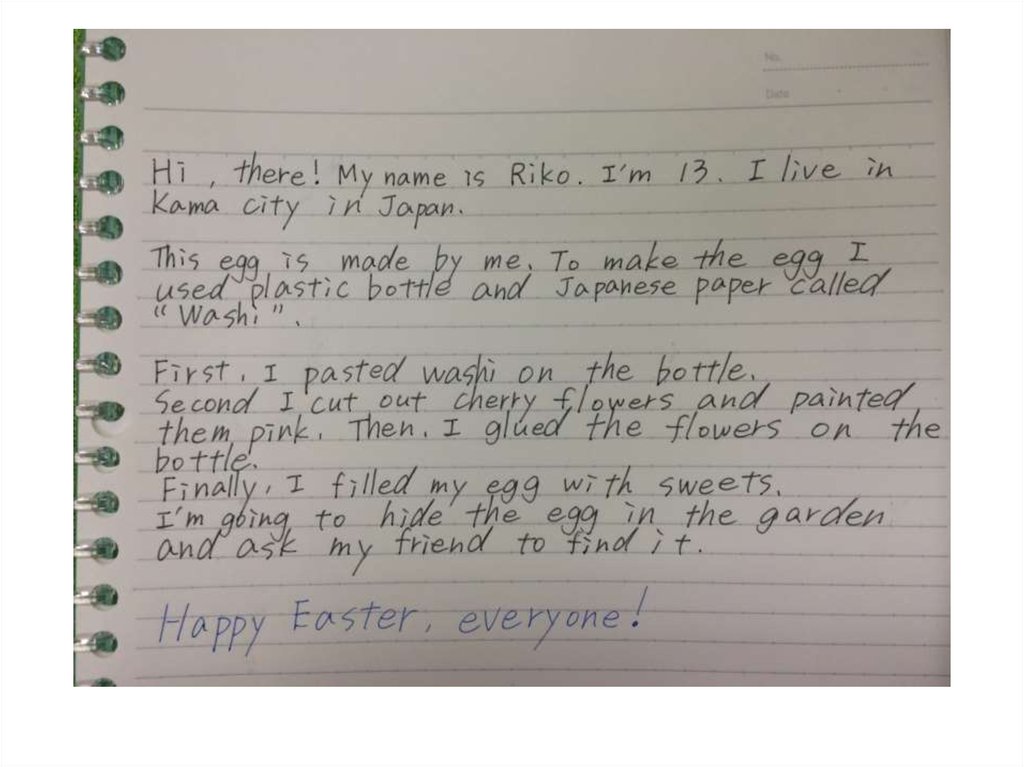 No.
Date
Hi, there! My name is Riko. I'm 13. I live in
Kama city in Japan.
This egg is made by me. To make the egg I
used plastic bottle and Japanese paper called
"Washi".
First, I pasted washi on the bottle.
Second I cut out cherry flowers and painted
them pink. Then, I glued the flowers on the
bottle.
Finally, I filled my egg with sweets.
I'm going to hide the egg in the garden
and ask my friend to find it.
Happy Easter, everyone!